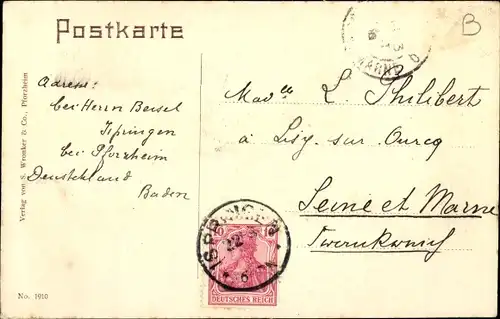 Postkarte
B
MARNE
Adresse:
bei Herrn Beisel
Ispringen
bei Pforzheim
Deutschland
Baden
Mad elle L. Philibert
à Lizy sur Ourcq
Seine et Marne
Frankreich
ISPRINGEN
22
6
DEUTSCHES REICH
Verlag von S. Wronker & Co., Pforzheim
No. 1910